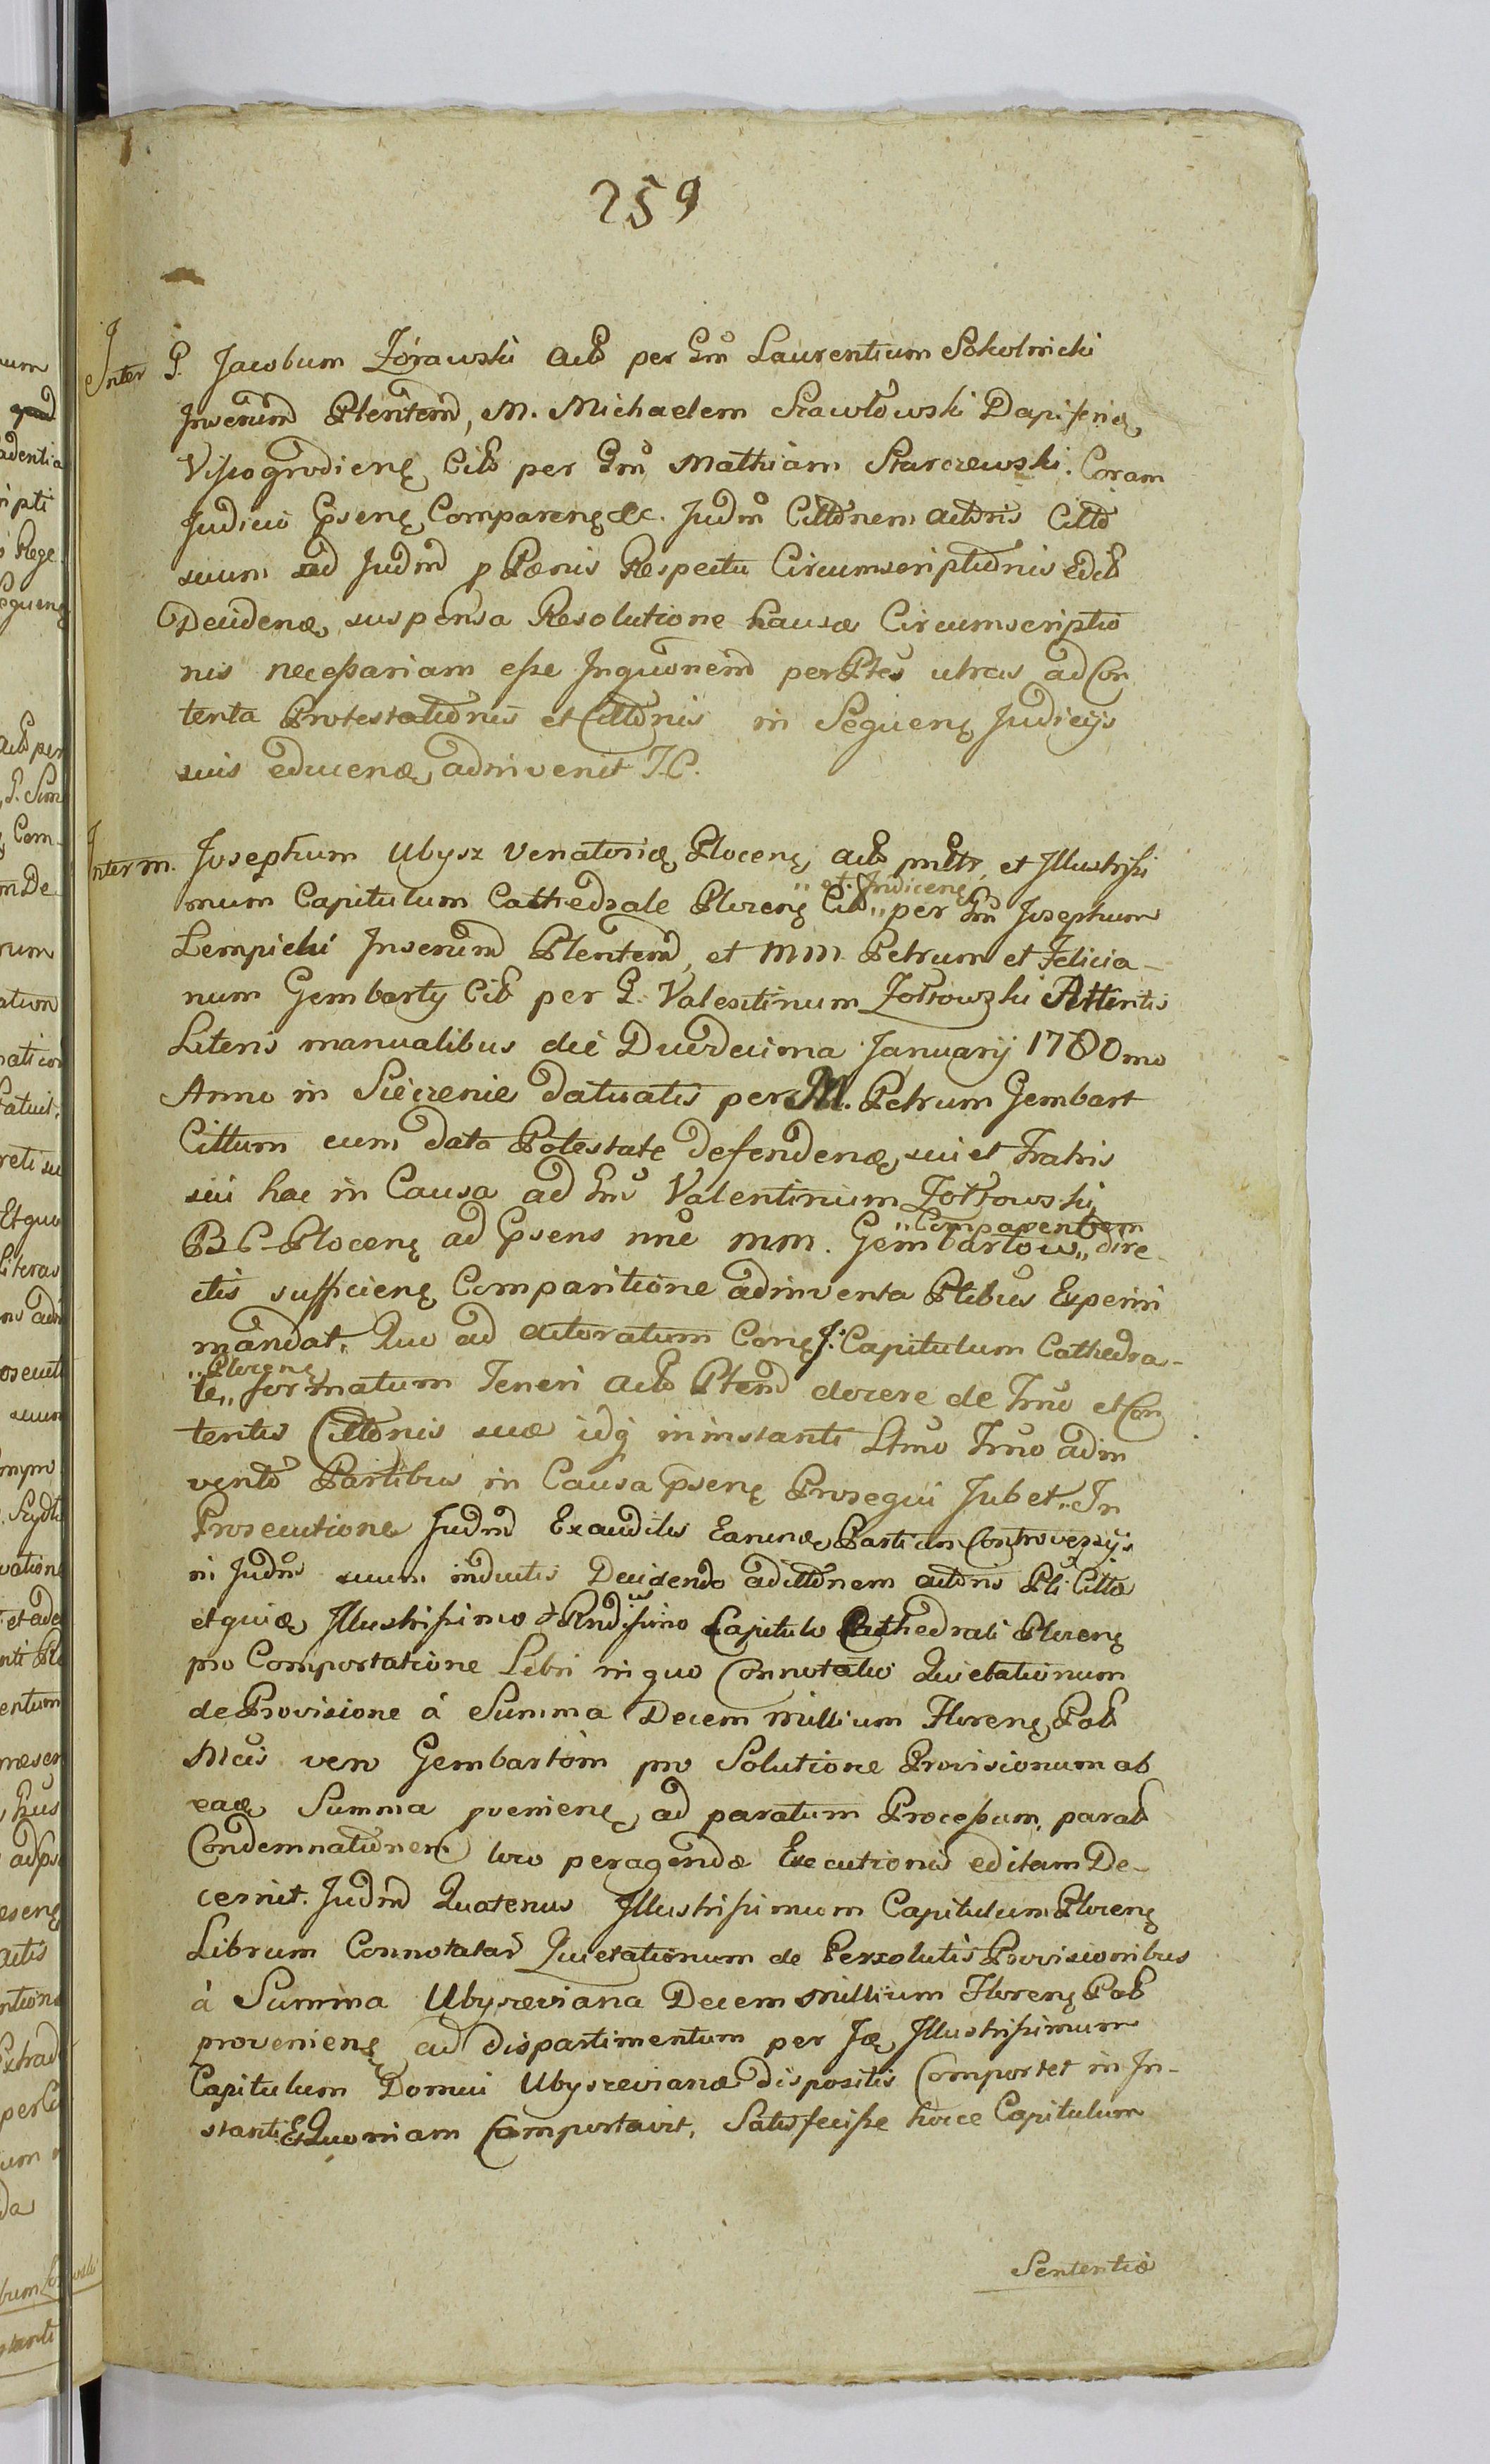 259
Inter G. Jacobum Zórawski Actō per Gm̄ Laurentium Sokolnicki
Inserēnm̄ Plentem̄, M. Michaelem Szawłowski Dapiferię
Vissogrodienę Citō per Gm̄ Mathiam Starczewski. Coram
Judicio Gpsenę Comparenę &c. Judm̄ Citt̄onem actōris Citt̄o
suum ad Judm̄ p Pœnis Respectu Circumscriptiōnis edctō
Decidendæ, suspensa Resolutione Causæ Circumscriptio
nis necessariam esse Inquōnem̄ per Ptes̄ utras ad Con
tenta Protestatiōnis et Citt̄onis in Sequenę Judicijs
suis educendæ, adinvenit I. C.
Inter M. Josephum Ubysz Venatorię Plocenę actō pn̄ltr, et Illustrissi
mum Capitulum Cathedrale Plocenę Citō „ per Gm̄ Josephum
„ et Indicenę
Lempicki Inserēnm̄ Plentem̄, et MM. Petrum et Felicia-
num Gembarty Citō per G. Valentinum Zołtowski Attentis
Literis manualibus die Duodecima Januarij 1780mo
Anno in Siecienie datuatis per M. Petrum Gembart
Cittum cum data Potestate defendendæ, sui et Fratris
sui hac in Causa ad Gm̄ Valentinum Zołtowski,
B C Plocenę ad Gpsens nn̄e MM. Gembartow „ dire-
„ Comparentem
ctis sufficienę Comparitione adinventa Ptibus Experiri
mandat. Quo ad actoratum Conę I: Capitulum Cathedra-
„ Plocenę
le „ formatum Teneri actō Ptem̄ docere de Tm̄o et Con
tentis Citt̄onis suæ idq in instanti Ltm̄o Tm̄o adin
vento Partibus in Causa Gpsenę Prosequi Jubet. In
Prosecutione Judm̄ Exauditis Earundæ, Partium Controversijs
in Judm̄ suum inductis Decidendo ad citt̄onem actōris Pti Citta
et quia Illustrissimo & Rndissimo Capitulo Cathedrali Plocenę
pro Comportatione Libri in quo Connotatio Quietationum
de Provisione á Summa Decem Millium Florenę Polō
Mcis vero Gembartōm pro Solutione Provisionum ab
eadę Summa pvenienę, ad paratum Processum, paratō
Condemnatiōnem loco peragendæ Executionis editam De-
cernit. Judm̄ Quatenus Illustrissimum Capitulum Plocenę
Librum Connotatar̄ Quietationum de Persolutis Provisionibus
á Summa Ubyszeviana Decem Millium Florenę Polō
provenienę ad dispartimentum per Idę Illustrissimum
Capitulum Domui Ubyszevianæ dispositis Comportet in In-
stanti Et Quoniam Comportavit, Satisfecisse hocce Capitulum
Sententiæ